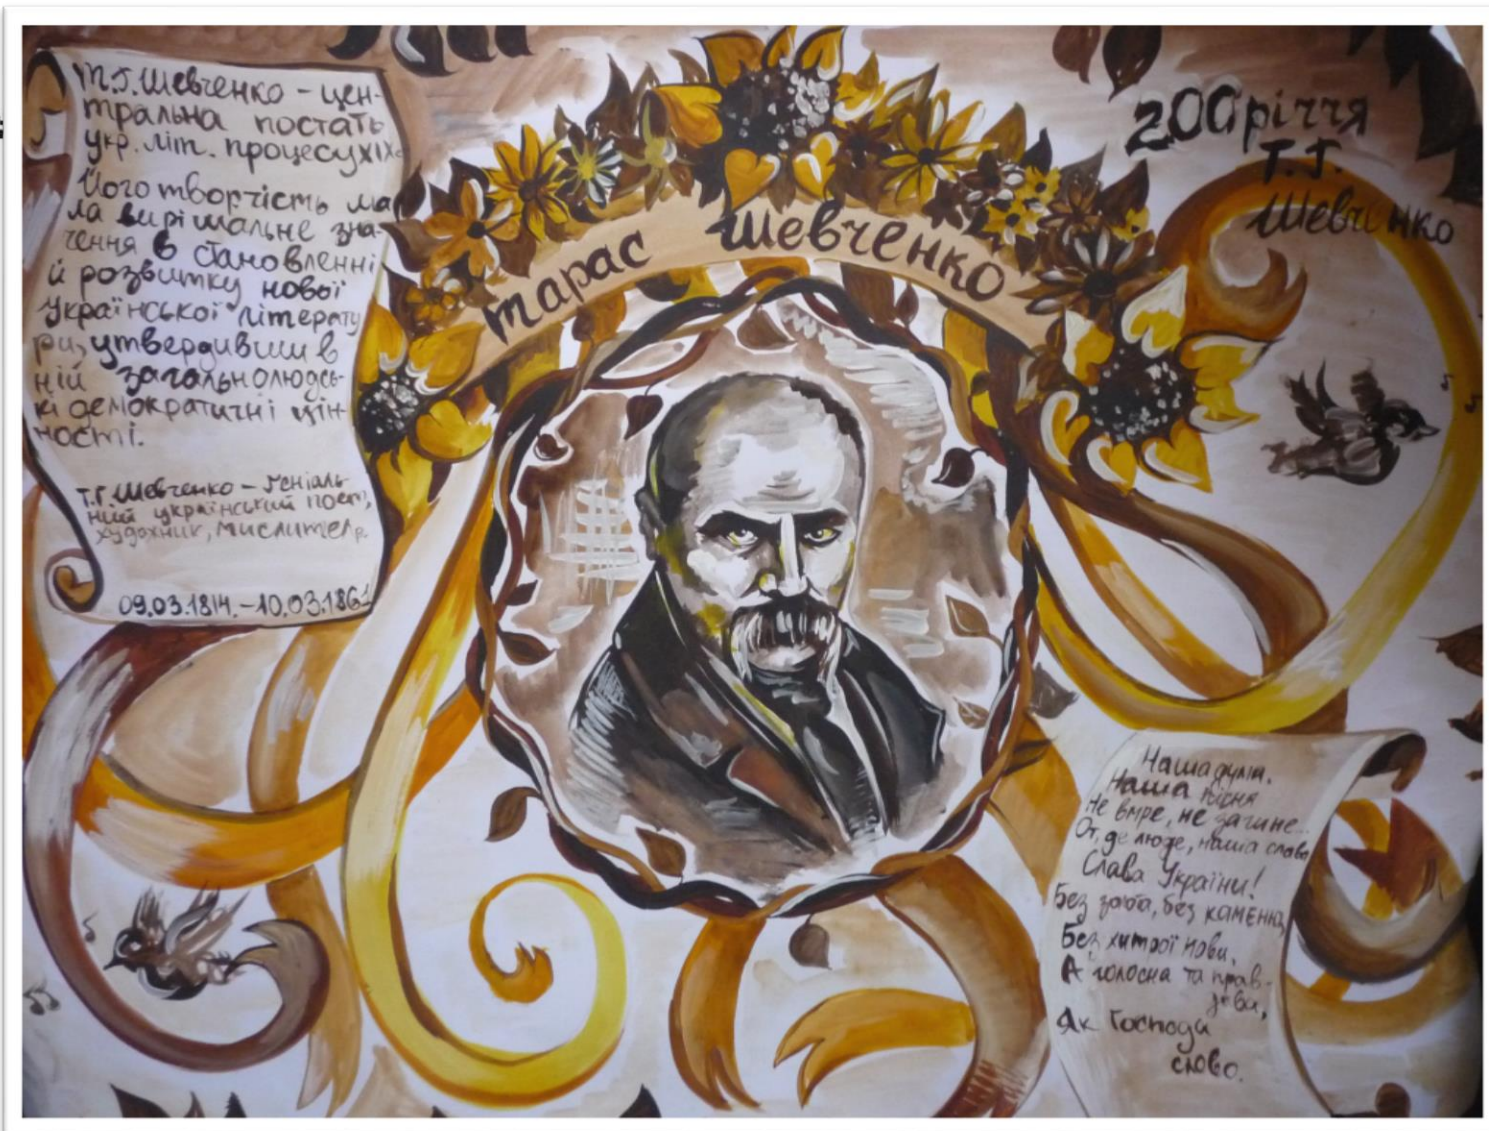 Т.Г. Шевченко – цен-
тральна постать
укр. літ. процесу ХІХ
Його творчість ма
ла вирішальне зна-
чення в становленні
й розвитку нової
української літерату
ри, утвердивши в
ній загальнолюдсь-
кі демократичні цін-
ності.
Т.Г. Шевченко – геніаль-
ний український поет,
художник, мислитель.
09.03.1814. – 10.03.1861
Тарас Шевченко
200 річчя
Т.Г.
Шевченко
Наша дума,
Наша пісня
Не вмре, не загине...
От, де люде, наша слава
Слава України!
Без золота, без каменю,
Без хитрої мови,
А голосна та прав-
дива,
Як Господа
слово.